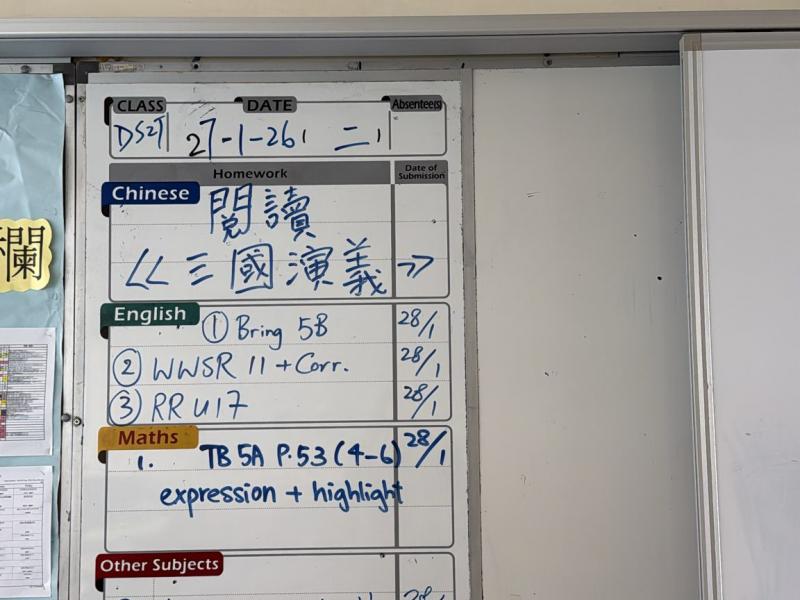 CLASS DATE Absentee(s)
27-1-26 二
Homework Date of Submission
Chinese
閱讀
《三國演義》
English
① Bring 5B 28/1
② WWSR 11 + Corr. 28/1
③ RR U17 28/1
Maths
1. TB 5A P.53 (4-6) 28/1
expression + highlight
Other Subjects
28/1
欄